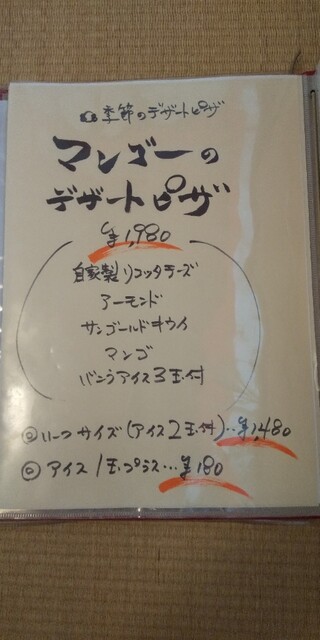 季節のデザートピザ
マンゴーの
デザートピザ
¥1,980
自家製リコッタチーズ
アーモンド
サンゴールドキウイ
マンゴ
バニラアイス3玉付
◎ハーフサイズ(アイス2玉付)‥¥1,480
◎アイス1玉プラス…¥180